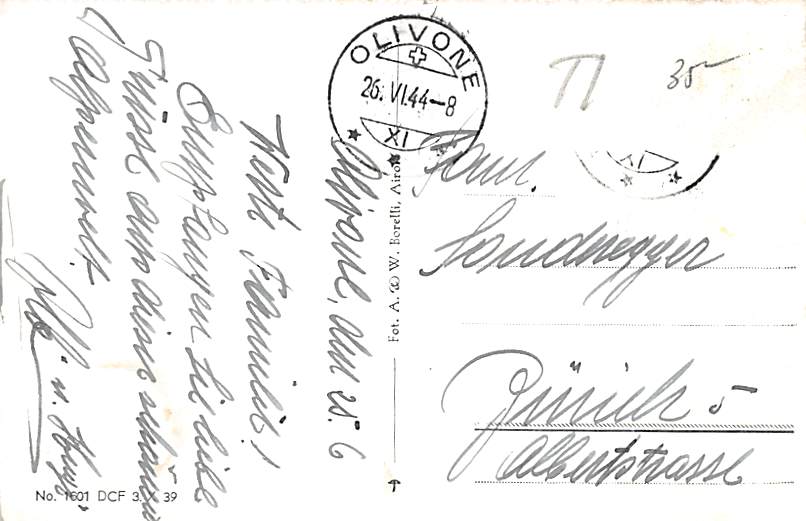 Olivone, den 25. 6
Werte Familie!
Empfangen Sie liebe
Grüsse aus dieser schönen
Alpenwelt.
u. Hugo
OLIVONE
26. VI. 44-8
XI
XI
T
35
Fam.
Sonderegger
Zürich 5
Albertstrasse
Fot. A. & W. Borelli, Airolo
No. 1601 DCF 3. X 39